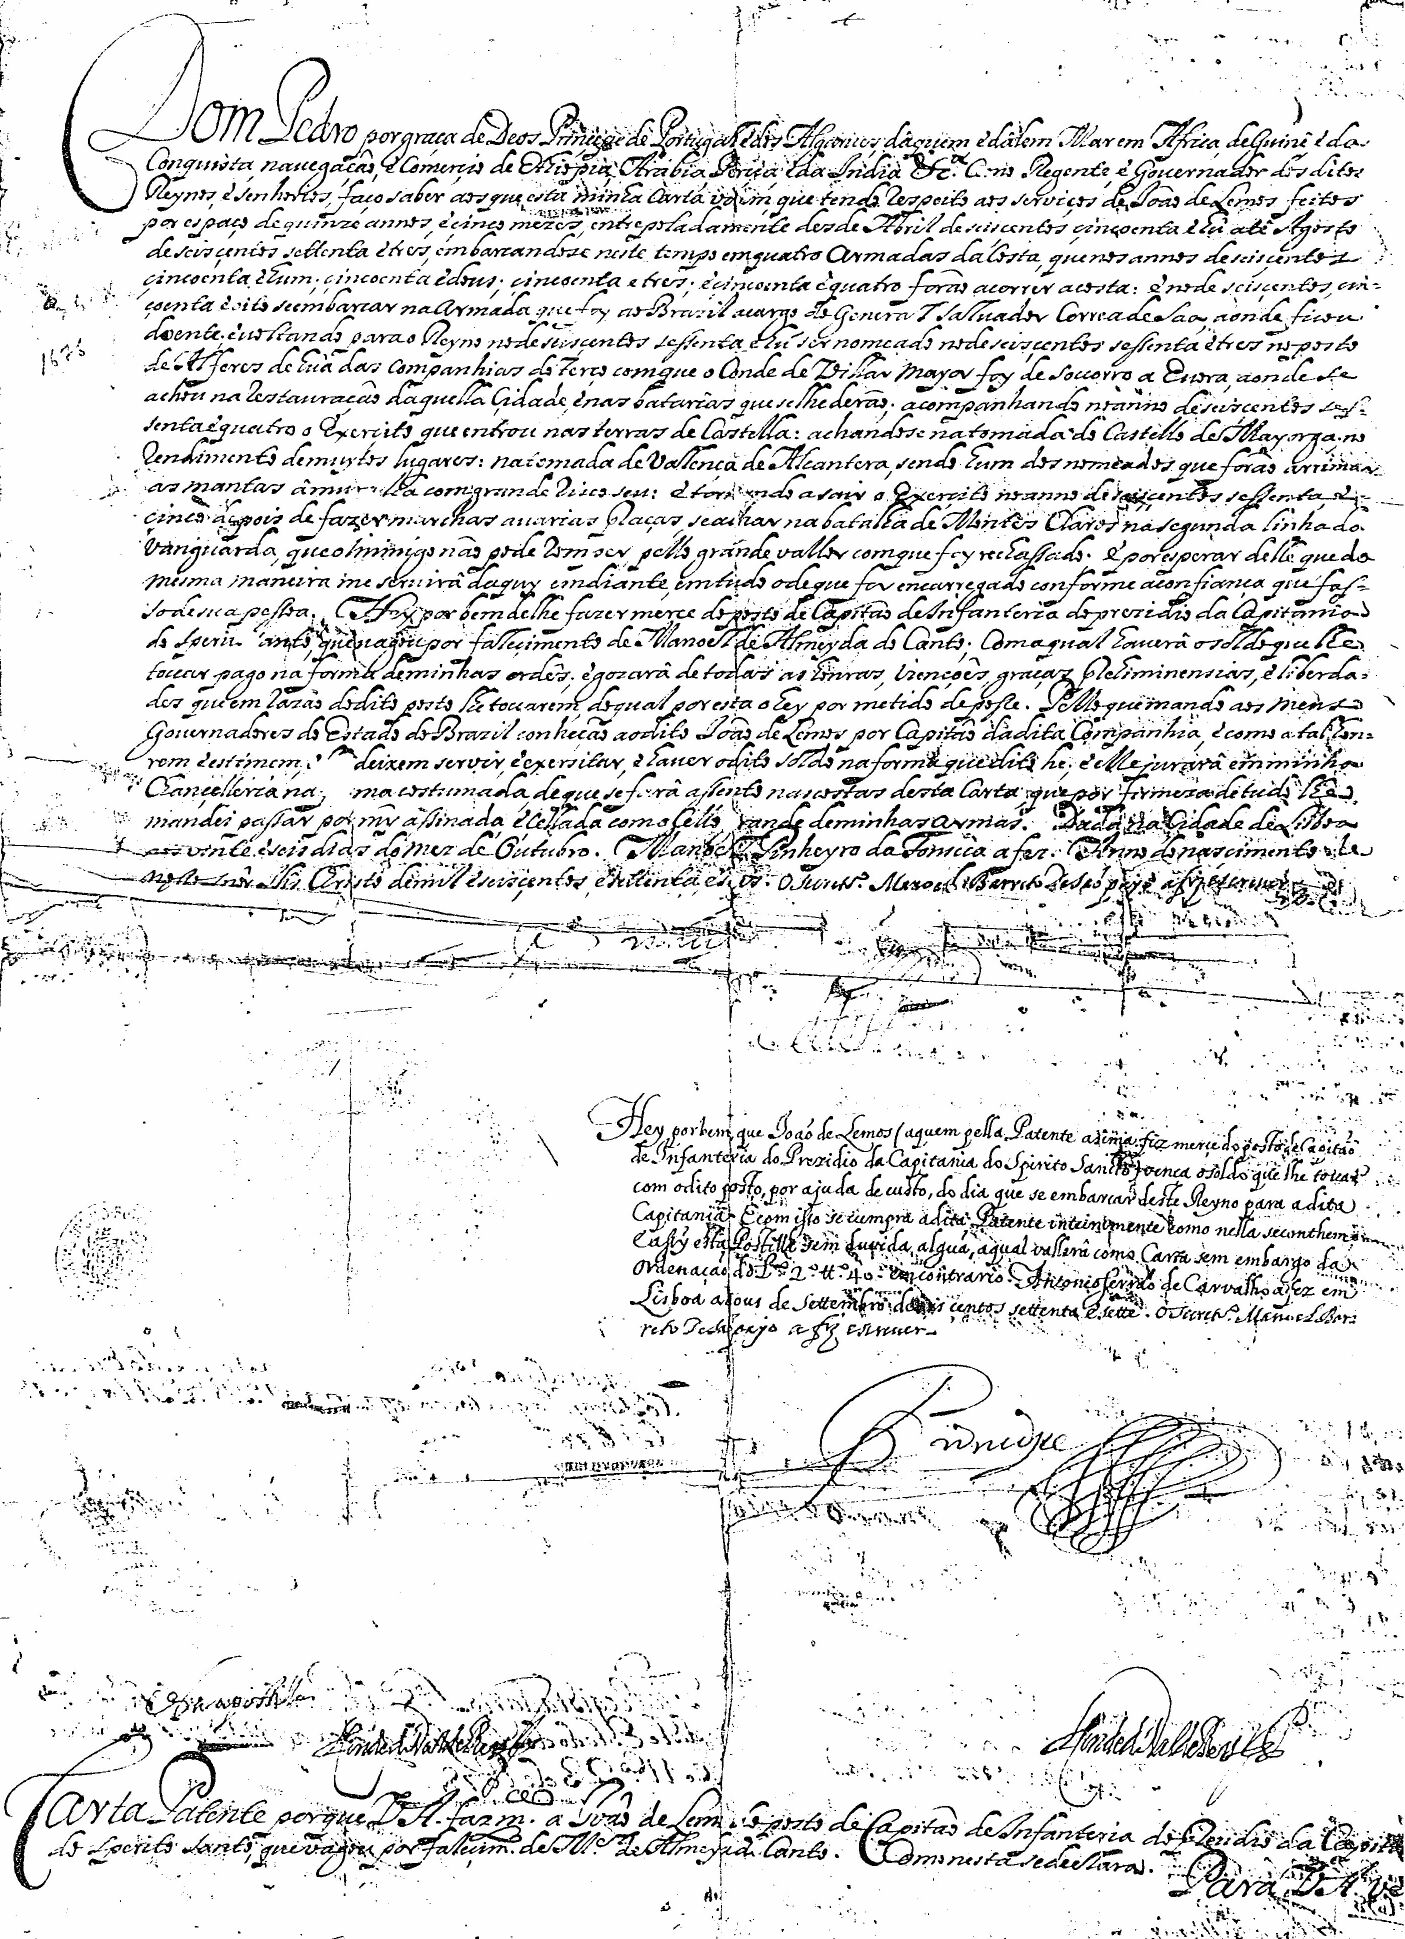 Dom Pedro por graça de Deos Principe de Portugal, e dos Algarves daquem e dalem Mar em Africa, de Guinê e da
Conquista, navegação, e Comerçio de Ethiopia, Arabia Perçia, e da India &c.ª Como Regente, e Governador dos ditos
Reynos, e senhorios, faço saber aos que esta minha Carta virem, que tendo respeito aos serviços de João de Lemos feitos
por espaço de quinze annos, e cinco mezes, entrepoladamente desde Abril de seiscentos cincoenta e hũ atê Agosto
de seiscentos settenta e tres, embarcandose neste tempo em quatro Armadas da Costa, que nos annos de seiscentos
cincoenta e hum; cincoenta e dous; cincoenta e tres; e cincoenta e quatro forão a correr a costa: e no de seiscentos, cin-
coenta e oito se embarcar na Armada que foy ao Brazil a cargo do General Salvador Correa de Saa, aonde ficou
doente, e voltando para o Reyno no de seiscentos sessenta e hũ ser nomeado no de seiscentos sessenta e tres no posto
de Alferes de hũa das companhias do terço com que o Conde de Villar Mayor foy de socorro a Evora, aonde se
achou na Restauração daquella Cidade, e nas batarias que se lhe derão; acompanhando no anno de seiscentos ses-
senta e quatro o Exercito que entrou nas terras de Castella: achandose na tomada do Castello de Mayorga, no
Rendimento de muytos lugares: na tomada de Valença de Alcantera, sendo hum dos nomeados, que forão arrimar
as mantas â com grande risco seu: e a sair o Exercito no anno de seiscentos sessenta, e
cinco depois de fazer marchas a varias Plaças, se achar na batalha de Montes Claros na segunda linha da
Vanguarda, que o inimigo não pode romper, pello grande vallor com que foy rechassado. E por esperar delle que da
mesma maneira me servirâ daquy em diante, em tudo o de que for encarregado conforme a confiança que faç-
so de sua pessoa. Hey por bem de lhe fazer merce do posto de Capitão de Infanteria do prezidio da Capitania
do Spiri anto, que vagou por falecimento de Manoel de Almeyda do Canto; Com a qual haverâ o soldo que lhe
tocar pago na forma de minhas ordês; e gozarâ de todas as honras, izenções, graças, Preeliminensias, e liberda-
des que em razão do dito posto lhe tocarem, do qual por esta o hey por metido de posse. Pello que mando aos meus
Governadores do Estado do Brazil conheção ao dito João de Lemos por Capitão da dita Companhia, e como a tal hon-
rem e estimem, deixem servir, e exersitar, e haver o dito soldo na forma que dito he; e elle jurarâ em minha
Chancelleria na ma costumada, de que se farâ assento nas costas desta Carta, que por firmeza de tudo lhe
mandei passar por my assinada, e sellada com o sello rande de minhas armas. Dada na Cidade de Lisboa
aos vinte e seis dias do mez de Outubro. Manoel Pinheyro da Fonseca a fez. Anno do nascimento de
nosso snõr Christo de mil e seiscentos e settenta e O Secret.º Manoel Barreto de Sãopayo a fiz escrever
1676
Hey por bem que João de Lemos (a quem pella Patente açima fiz merce do posto de Capitão
de Infanteria do Prezidio da Capitania do Spirito Sancto) vença o soldo que lhe tocar
com o dito posto, por ajuda de custo, do dia que se embarcar deste Reyno para a dita
Capitania. E com isso se cumpra a dita Patente inteiramente como nella se conthem,
e assy esta Postilla sem duvida, algũa, a qual vallerâ como Carta sem embargo da
ordenação do L.º 2.º tt.º 40. em contrario. Antonio Serrão de Carvalho a fez em
Lisboa a dous de Settembro de seis centos settenta e sette. O Secret.º Manoel Bar-
reto de Sãopayo a fiz escrever.
Principe
Conde de Val de Reys
Conde de Val de Reys
Carta Patente porque V. A. faz m. a João de Lem do posto de Capitão de Infanteria do Prezidio da Capita
do Sperito Santo, que vagou por falecim.to de M.el de Almeyda do Canto. Como nesta se declara.
Para V. A. ver